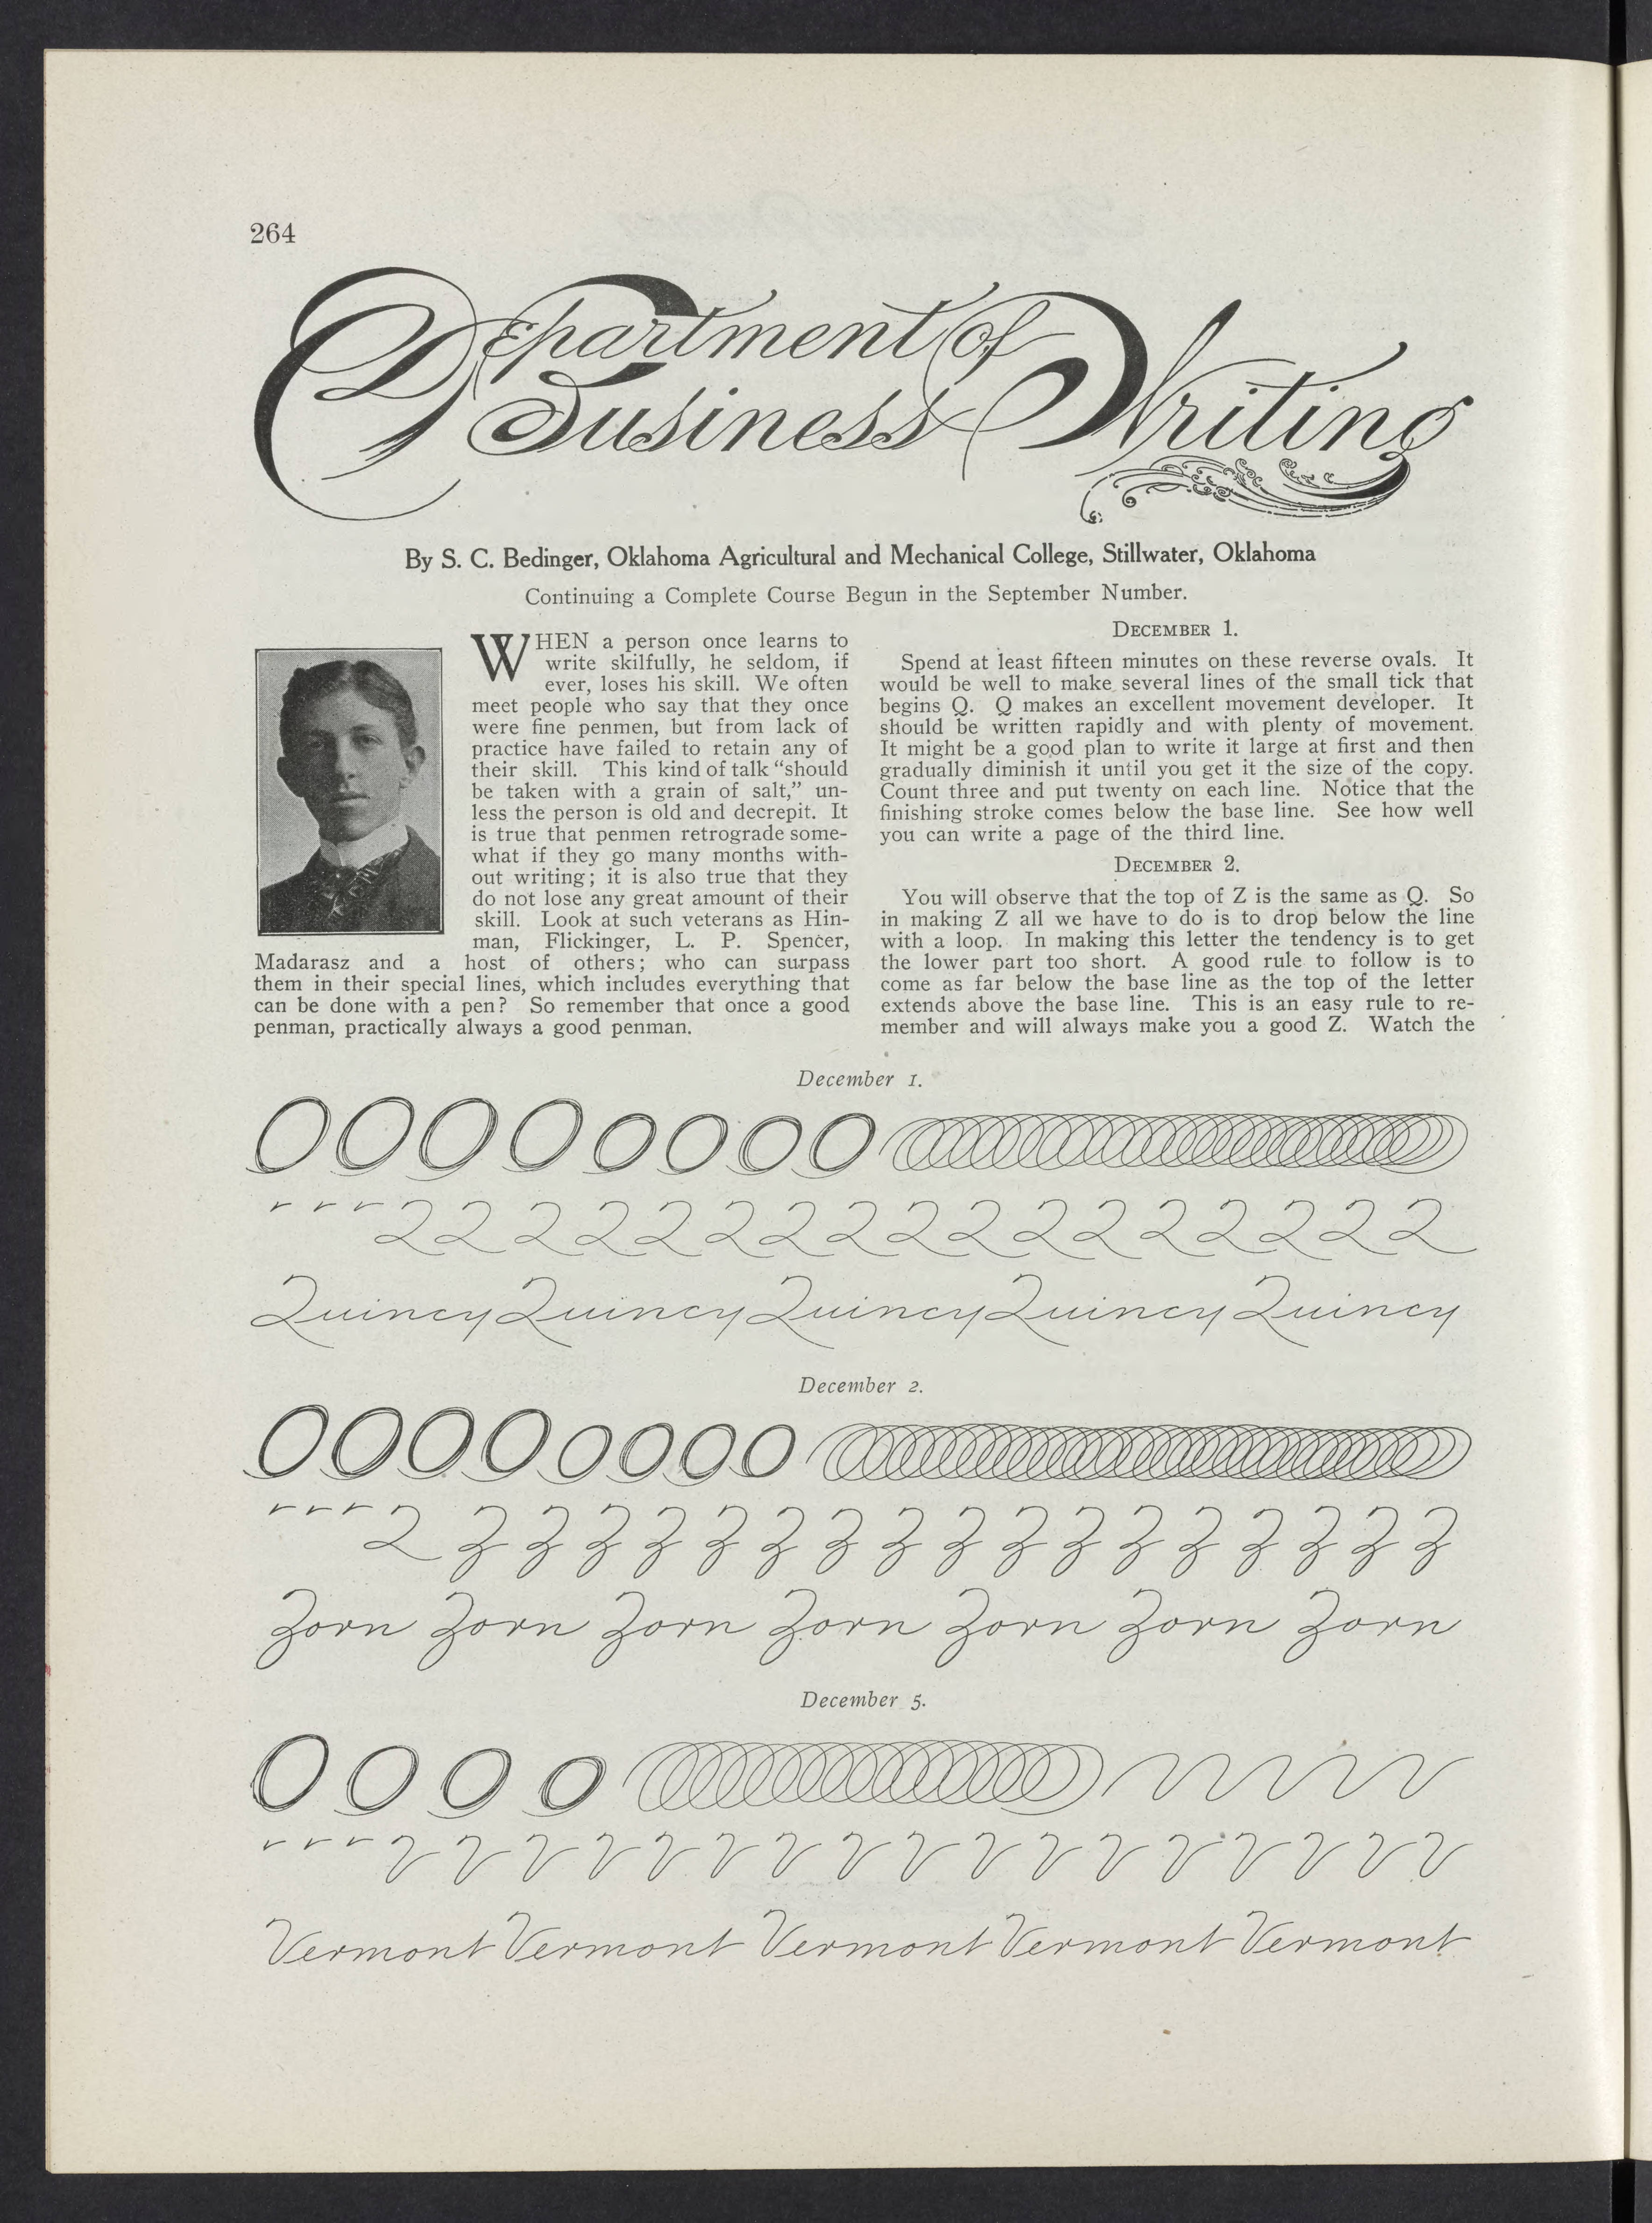 264
Department of
Business Writing
By S. C. Bedinger, Oklahoma Agricultural and Mechanical College, Stillwater, Oklahoma
Continuing a Complete Course Begun in the September Number.
WHEN a person once learns to
write skilfully, he seldom, if
ever, loses his skill. We often
meet people who say that they once
were fine penmen, but from lack of
practice have failed to retain any of
their skill. This kind of talk “should
be taken with a grain of salt,” un-
less the person is old and decrepit. It
is true that penmen retrograde some-
what if they go many months with-
out writing; it is also true that they
do not lose any great amount of their
skill. Look at such veterans as Hin-
man, Flickinger, L. P. Spencer,
Madarasz and a host of others; who can surpass
them in their special lines, which includes everything that
can be done with a pen? So remember that once a good
penman, practically always a good penman.
DECEMBER 1.
Spend at least fifteen minutes on these reverse ovals. It
would be well to make several lines of the small tick that
begins Q. Q makes an excellent movement developer. It
should be written rapidly and with plenty of movement.
It might be a good plan to write it large at first and then
gradually diminish it until you get it the size of the copy.
Count three and put twenty on each line. Notice that the
finishing stroke comes below the base line. See how well
you can write a page of the third line.
DECEMBER 2.
You will observe that the top of Z is the same as Q. So
in making Z all we have to do is to drop below the line
with a loop. In making this letter the tendency is to get
the lower part too short. A good rule to follow is to
come as far below the base line as the top of the letter
extends above the base line. This is an easy rule to re-
member and will always make you a good Z. Watch the
December 1.
O O O O O O O O
Q Q Q Q Q Q Q Q Q Q Q Q Q Q Q Q Q
Quincy Quincy Quincy Quincy Quincy
December 2.
O O O O O O O O
Q Z Z Z Z Z Z Z Z Z Z Z Z Z Z Z Z Z
Zorn Zorn Zorn Zorn Zorn Zorn Zorn
December 5.
O O O O
V V V V V V V V V V V V V V V V V
Vermont Vermont Vermont Vermont Vermont